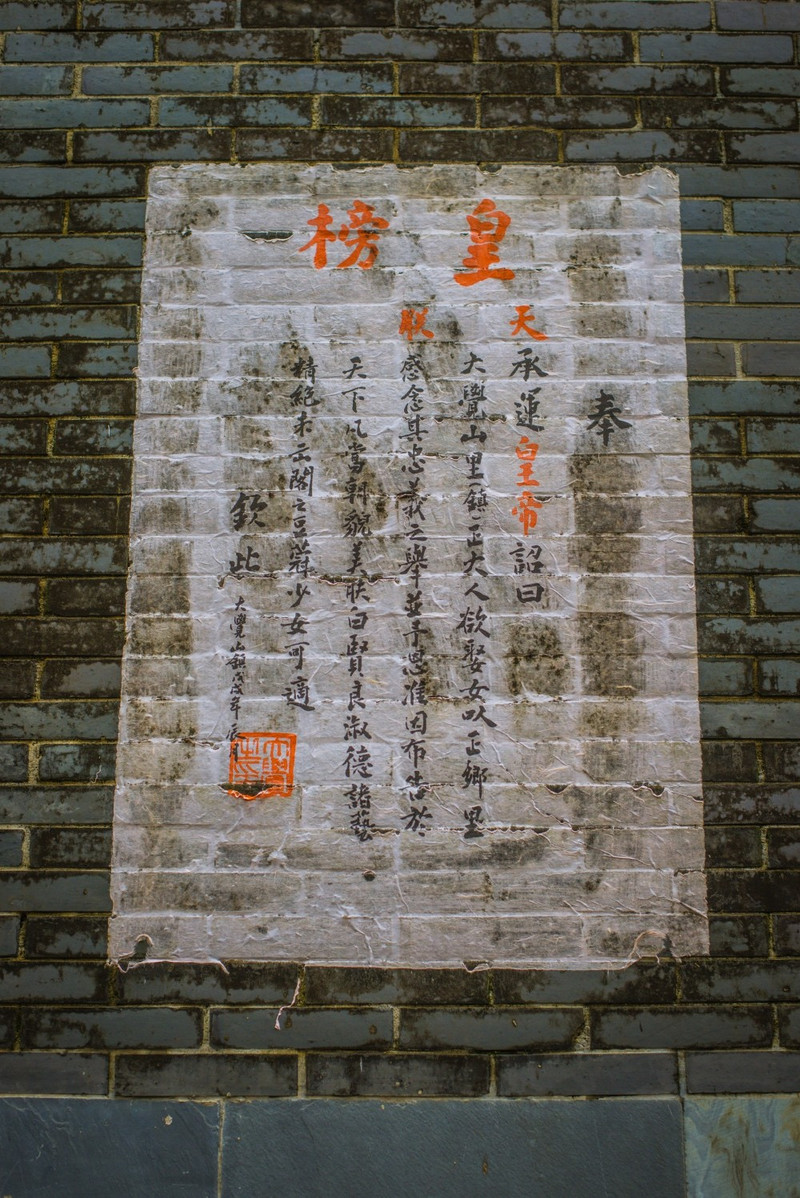 皇榜
奉
天承運皇帝詔曰
大覺山里鎮正大人欲娶女以正鄉里
朕感念其忠義之舉並予恩准因布告於
天下凡當朝貌美肤白賢良淑德諸藝
精絕未出閣之豆蔻少女可適
欽此
大覺山鎮戊戌年